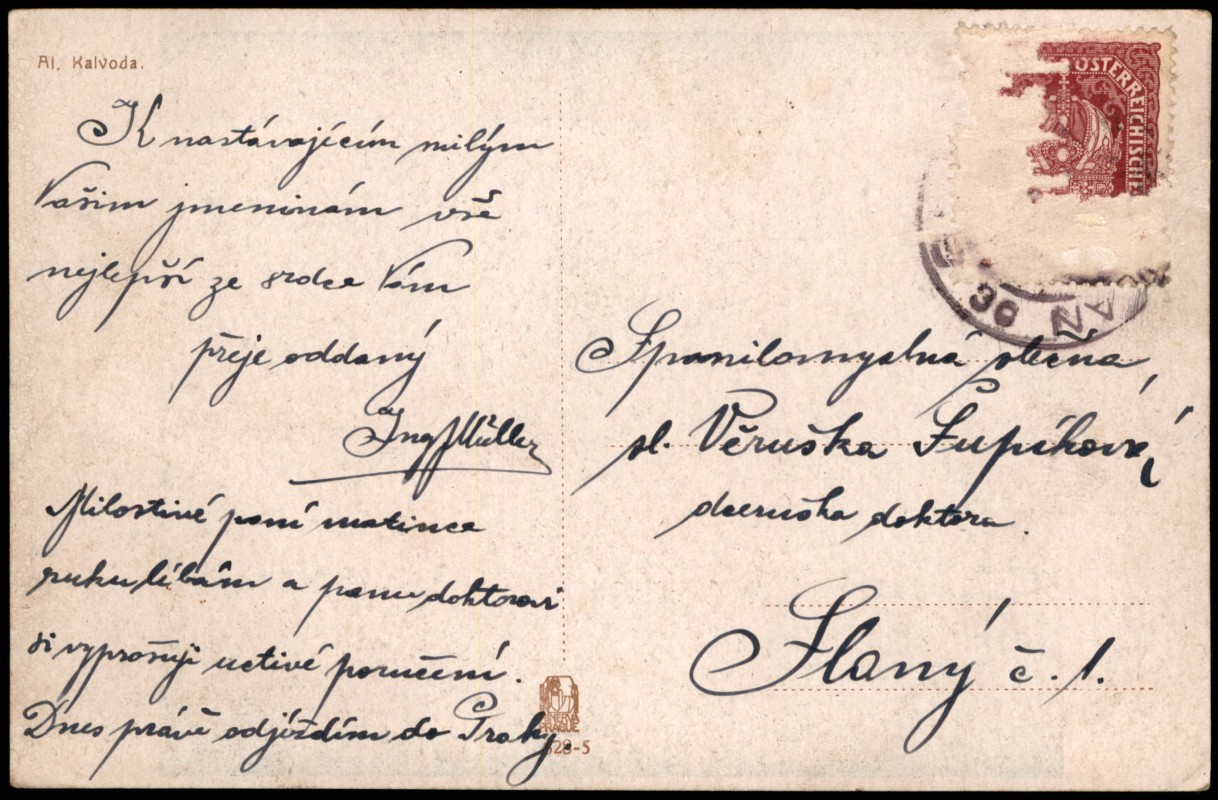 Al. Kalvoda.
K nastávajícím milým
Vašim jmeninám vše
nejlepší ze srdce Vám
přeje oddaný
Ing Müller
Milostivé paní matince
ruku líbám a panu doktorovi
si vyprošuji uctivé poručení.
Dnes právě odjíždím do Prahy.
ÖSTERREICHISCHE
30 NA
Spanilomyslná slečna,
sl. Věruška Šupíková,
dceruška doktora.
Slaný č. 1.
MINERVA
PRAGUE
328-5